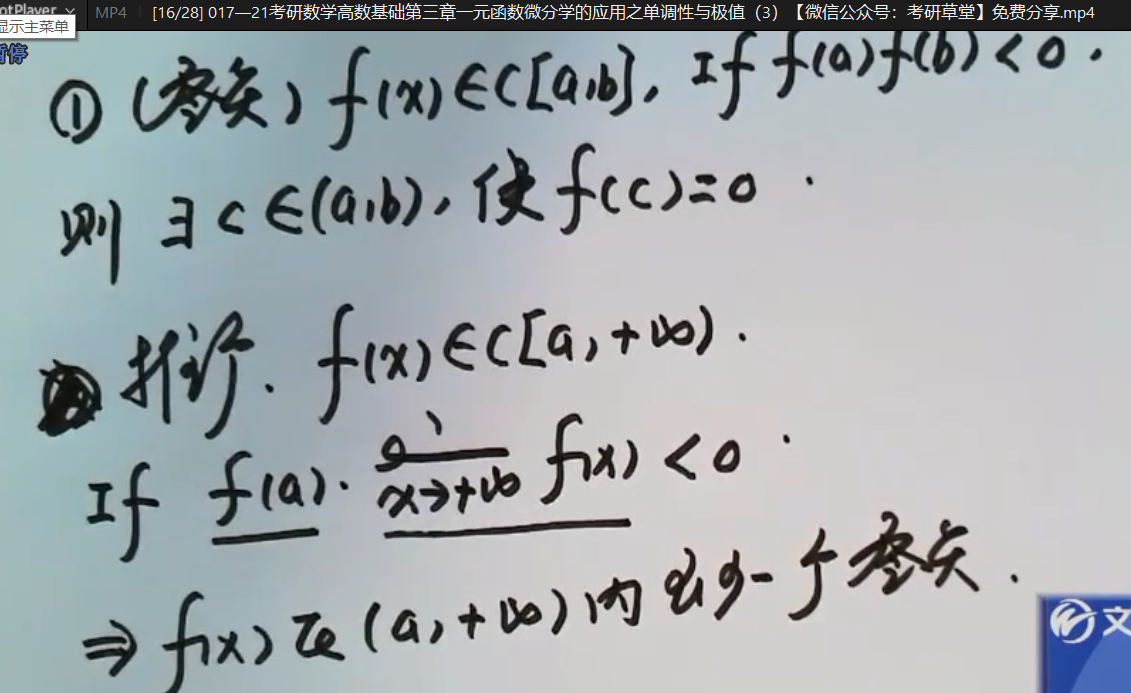 otPlayer MP4 [16/28] 017—21考研数学高数基础第三章一元函数微分学的应用之单调性与极值（3）【微信公众号：考研草堂】免费分享.mp4
显示主菜单
暂停
① (零点) f(x)∈C[a,b], If f(a)f(b)<0.
则 ∃c∈(a,b), 使 f(c)=0.
推论. f(x)∈C[a,+∞).
If f(a)· lim x→+∞ f(x) <0.
⇒ f(x)在(a,+∞)内至少一个零点.
文